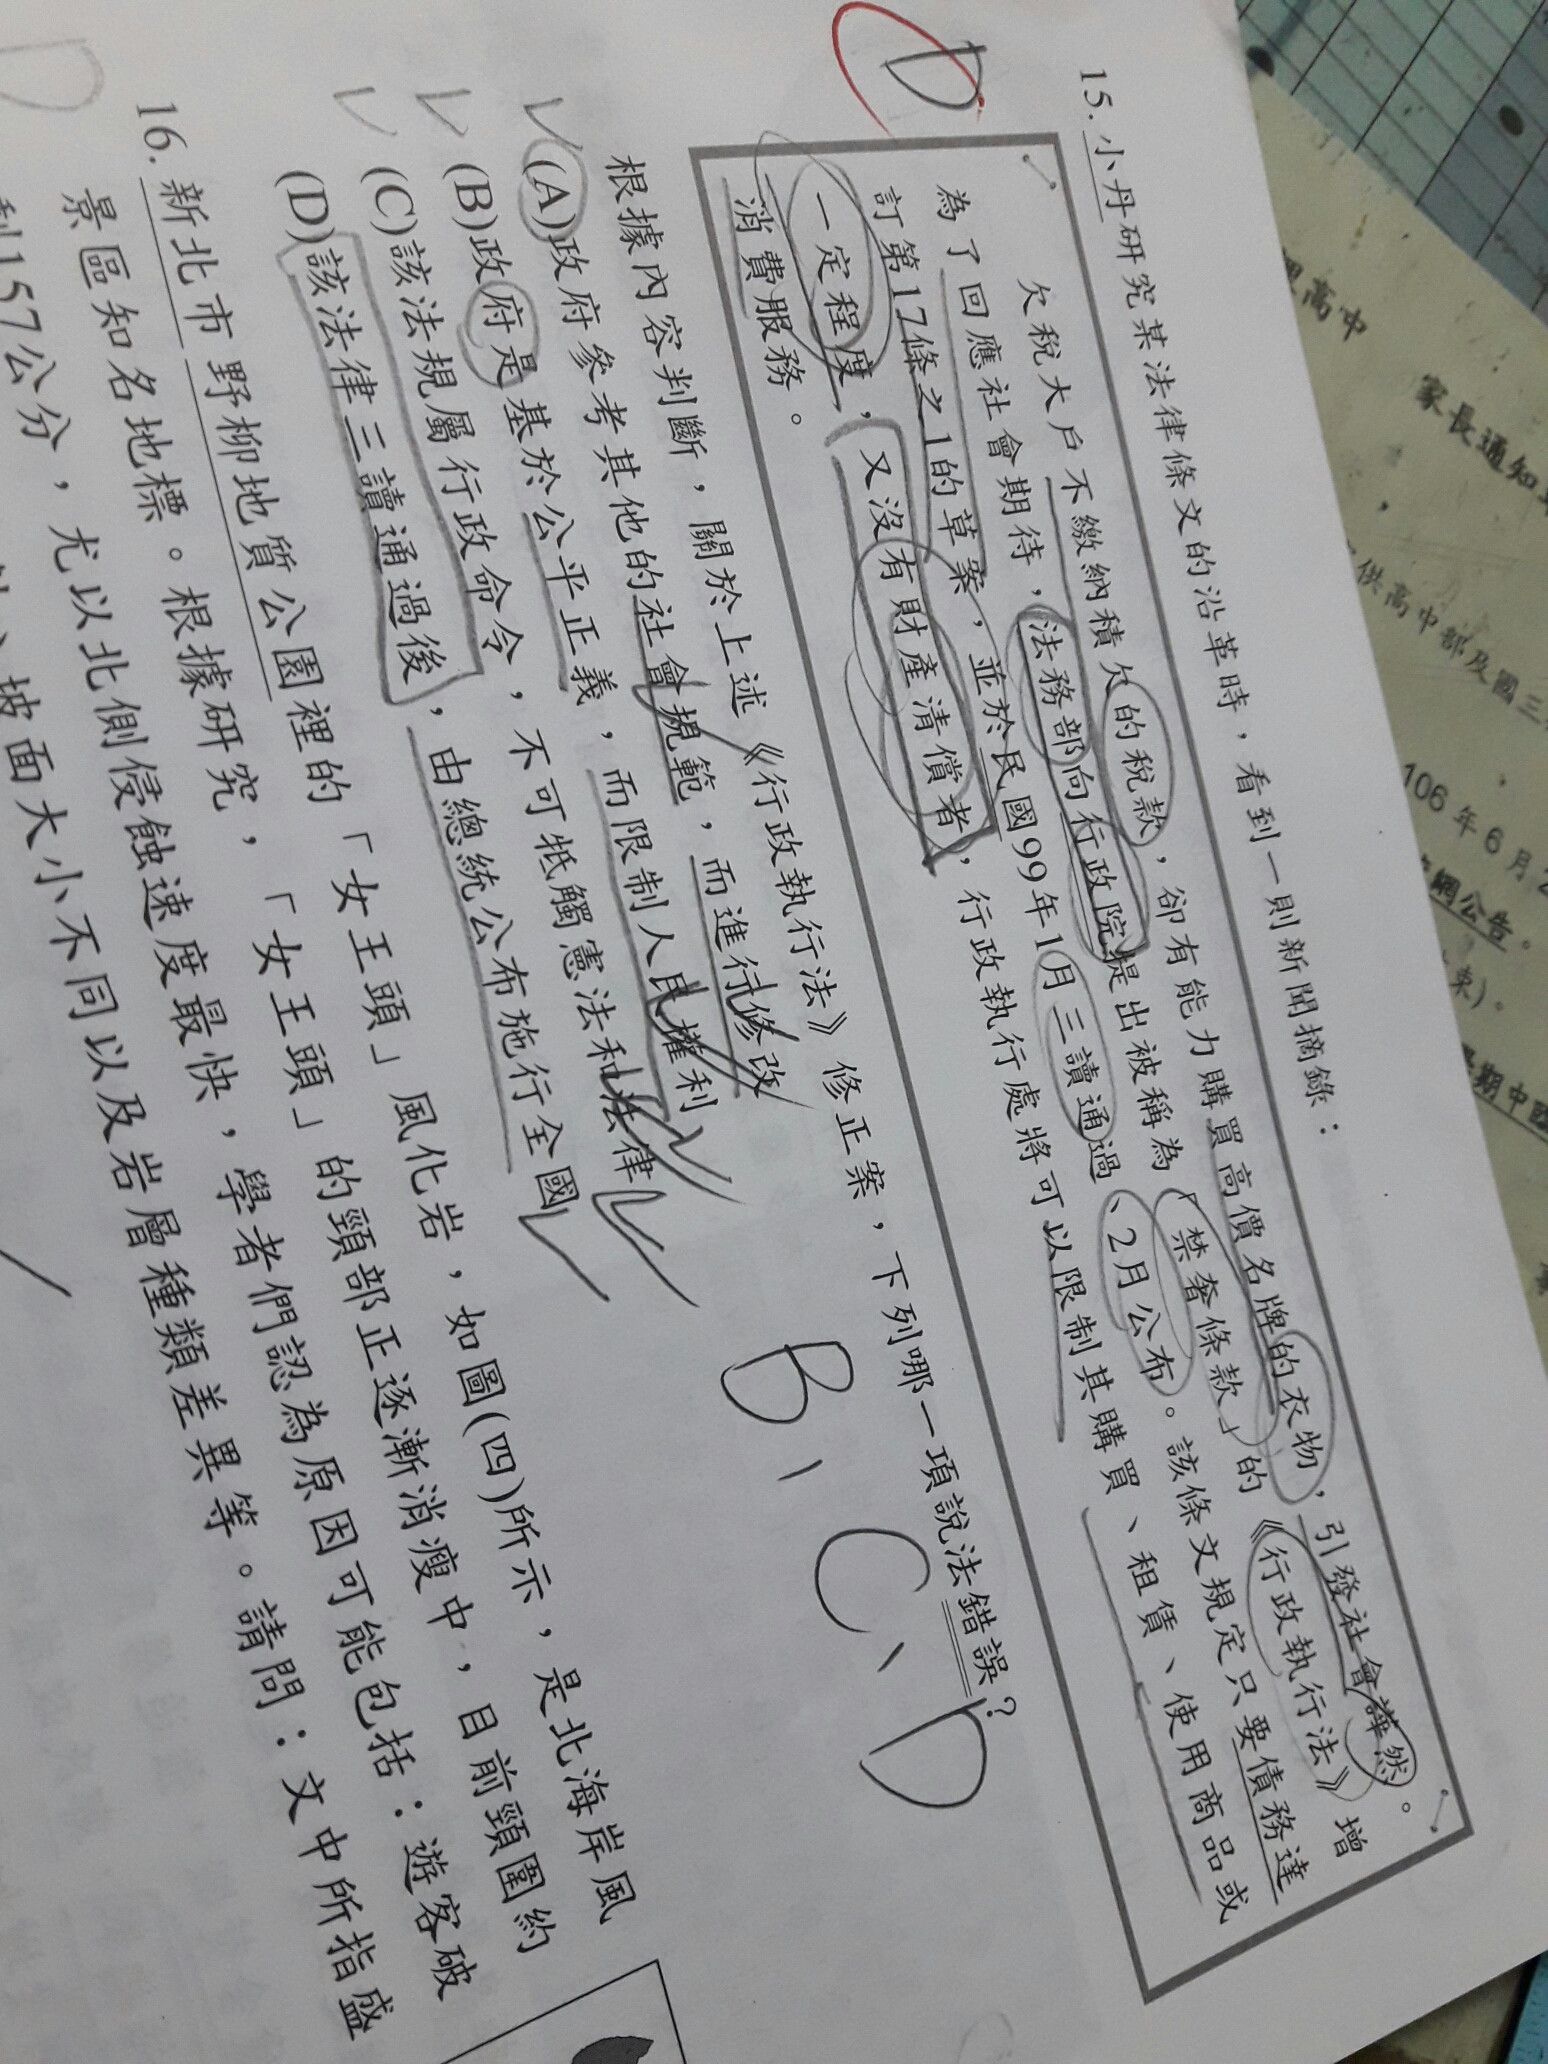 15.小丹研究某法律條文的沿革時，看到一則新聞摘錄：
欠稅大戶不繳納積欠的稅款，卻有能力購買高價名牌的衣物，引發社會譁然。
為了回應社會期待，法務部向行政院提出被稱為「禁奢條款」的《行政執行法》增
訂第17條之1的草案，並於民國99年1月三讀通過、2月公布。該條文規定只要債務達
一定程度，又沒有財產清償者，行政執行處將可以限制其購買、租賃、使用商品或
消費服務。
根據內容判斷，關於上述《行政執行法》修正案，下列哪一項說法錯誤？
(A)政府參考其他的社會規範，而進行修改
(B)政府是基於公平正義，而限制人民權利
(C)該法規屬行政命令，不可牴觸憲法和法律
(D)該法律三讀通過後，由總統公布施行全國
D
B、C、D
16.新北市野柳地質公園裡的「女王頭」風化岩，如圖(四)所示，是北海岸風
景區知名地標。根據研究，「女王頭」的頸部正逐漸消瘦中，目前頸圍約
剩157公分，尤以北側侵蝕速度最快，學者們認為原因可能包括：遊客破
坡面大小不同以及岩層種類差異等。請問：文中所指盛
D
高中
家長通知
供高中部及國三
106年6月2
網公告。
期中